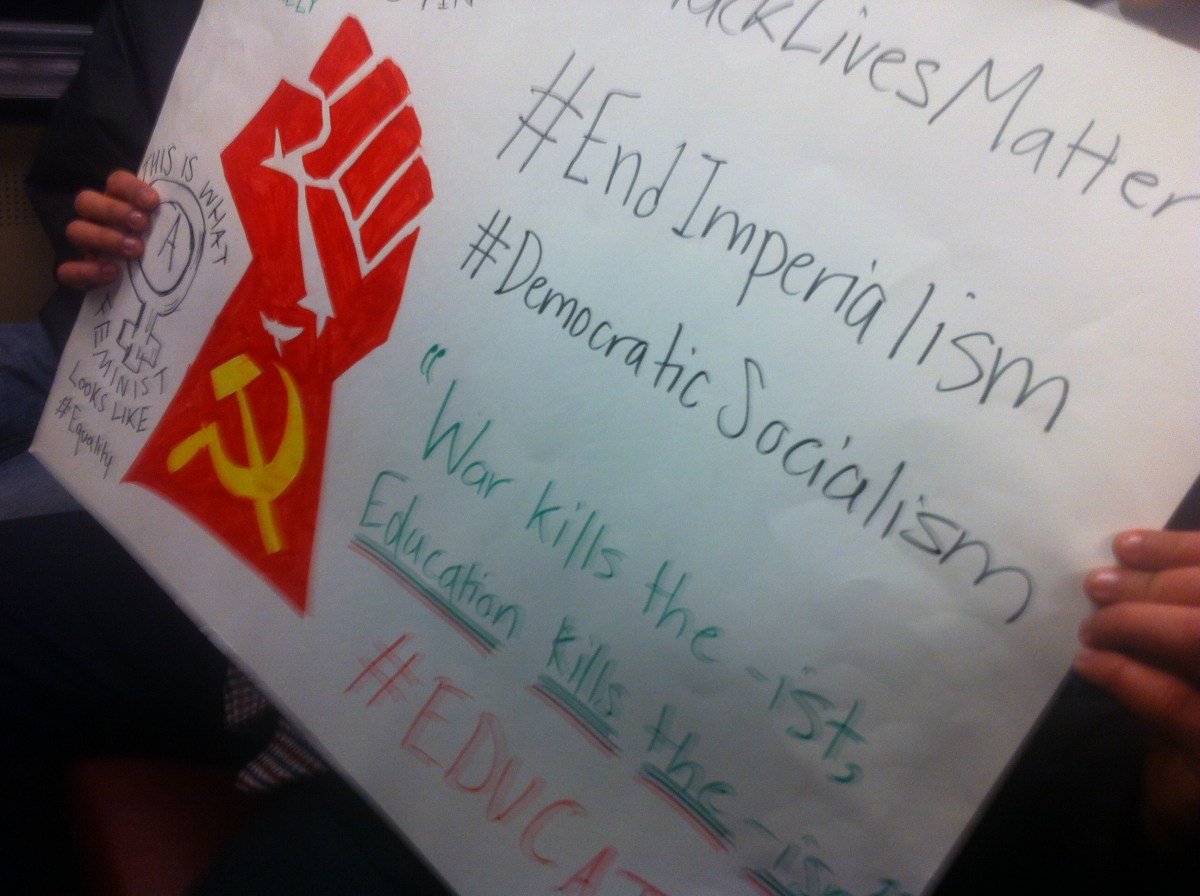 ackLivesMatter
#EndImperialism
#Democratic Socialism
"War kills the -ist,
Education kills the -ism
#EDUCAT
THIS IS WHAT
A
FEMINIST
LOOKS LIKE
#Equality